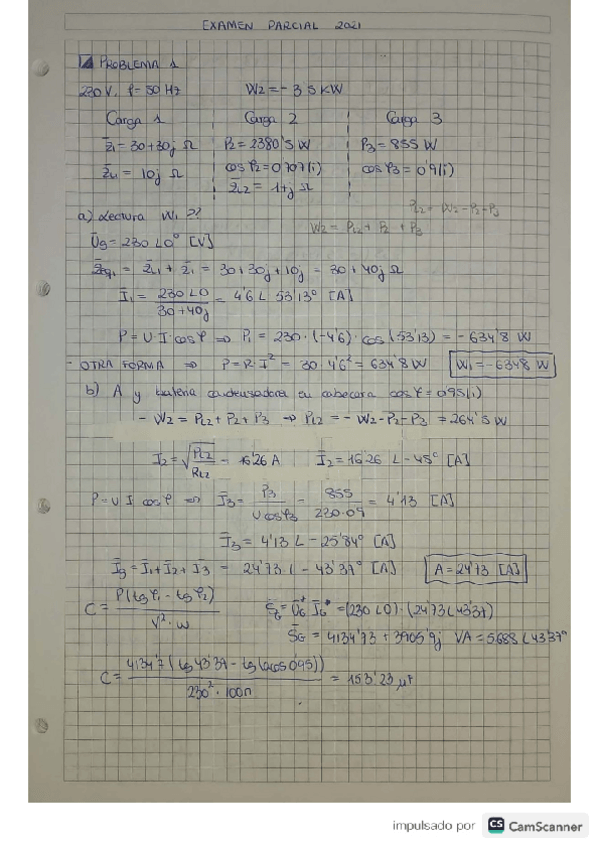 EXAMEN PARCIAL 2021
PROBLEMA 1
230 V. f = 50 Hz W2 = - 3'5 KW
Carga 1 Carga 2 Carga 3
Z̄1 = 30+30j Ω P2 = 2380'5 W P3 = 855 W
Z̄L1 = 10j Ω cos φ2 = 0'707 (i) cos φ3 = 0'9 (i)
Z̄L2 = 1+j Ω
PL2 = W2 - P2 - P3
a) Lectura W1 ??
W2 = PL2 + P2 + P3
Ūg = 230 ∠0° [V]
Z̄eq1 = Z̄L1 + Z̄1 = 30+30j+10j = 30+40j Ω
Ī1 = 230∠0 / 30+40j = 4'6 ∠ 53'13° [A]
P = U·I·cos φ ⇒ P1 = 230·(-4'6)·cos(53'13) = -634'8 W
- OTRA FORMA ⇒ P = R·I² = 30·4'6² = 634'8 W W1 = -634'8 W
b) A y batería condensadora en cabecera cos φ = 0'95 (i)
- W2 = PL2 + P2 + P3 → PL2 = - W2 - P2 - P3 = 264'5 W
I2 = √(PL2 / RL2) = 16'26 A Ī2 = 16'26 ∠-45° [A]
P = U I cos φ ⇒ Ī3 = P3 / U cos φ3 = 855 / 230·0'9 = 4'13 [A]
Ī3 = 4'13 ∠-25'84° [A]
Īg = Ī1 + Ī2 + Ī3 = 24'73 ∠-43'37° [A] A = 24'73 [A]
C = P(tg φ1 - tg φ2) / V²·w S̄G = ŪG ĪG* = (230∠0)·(24'73∠43'37)
S̄G = 4134'73 + 3905'9j VA = 5688∠43'37°
C = 4134'7 (tg 43'37 - tg(acos 0'95)) / 230²·100π = 153'23 µF
impulsado por CS CamScanner